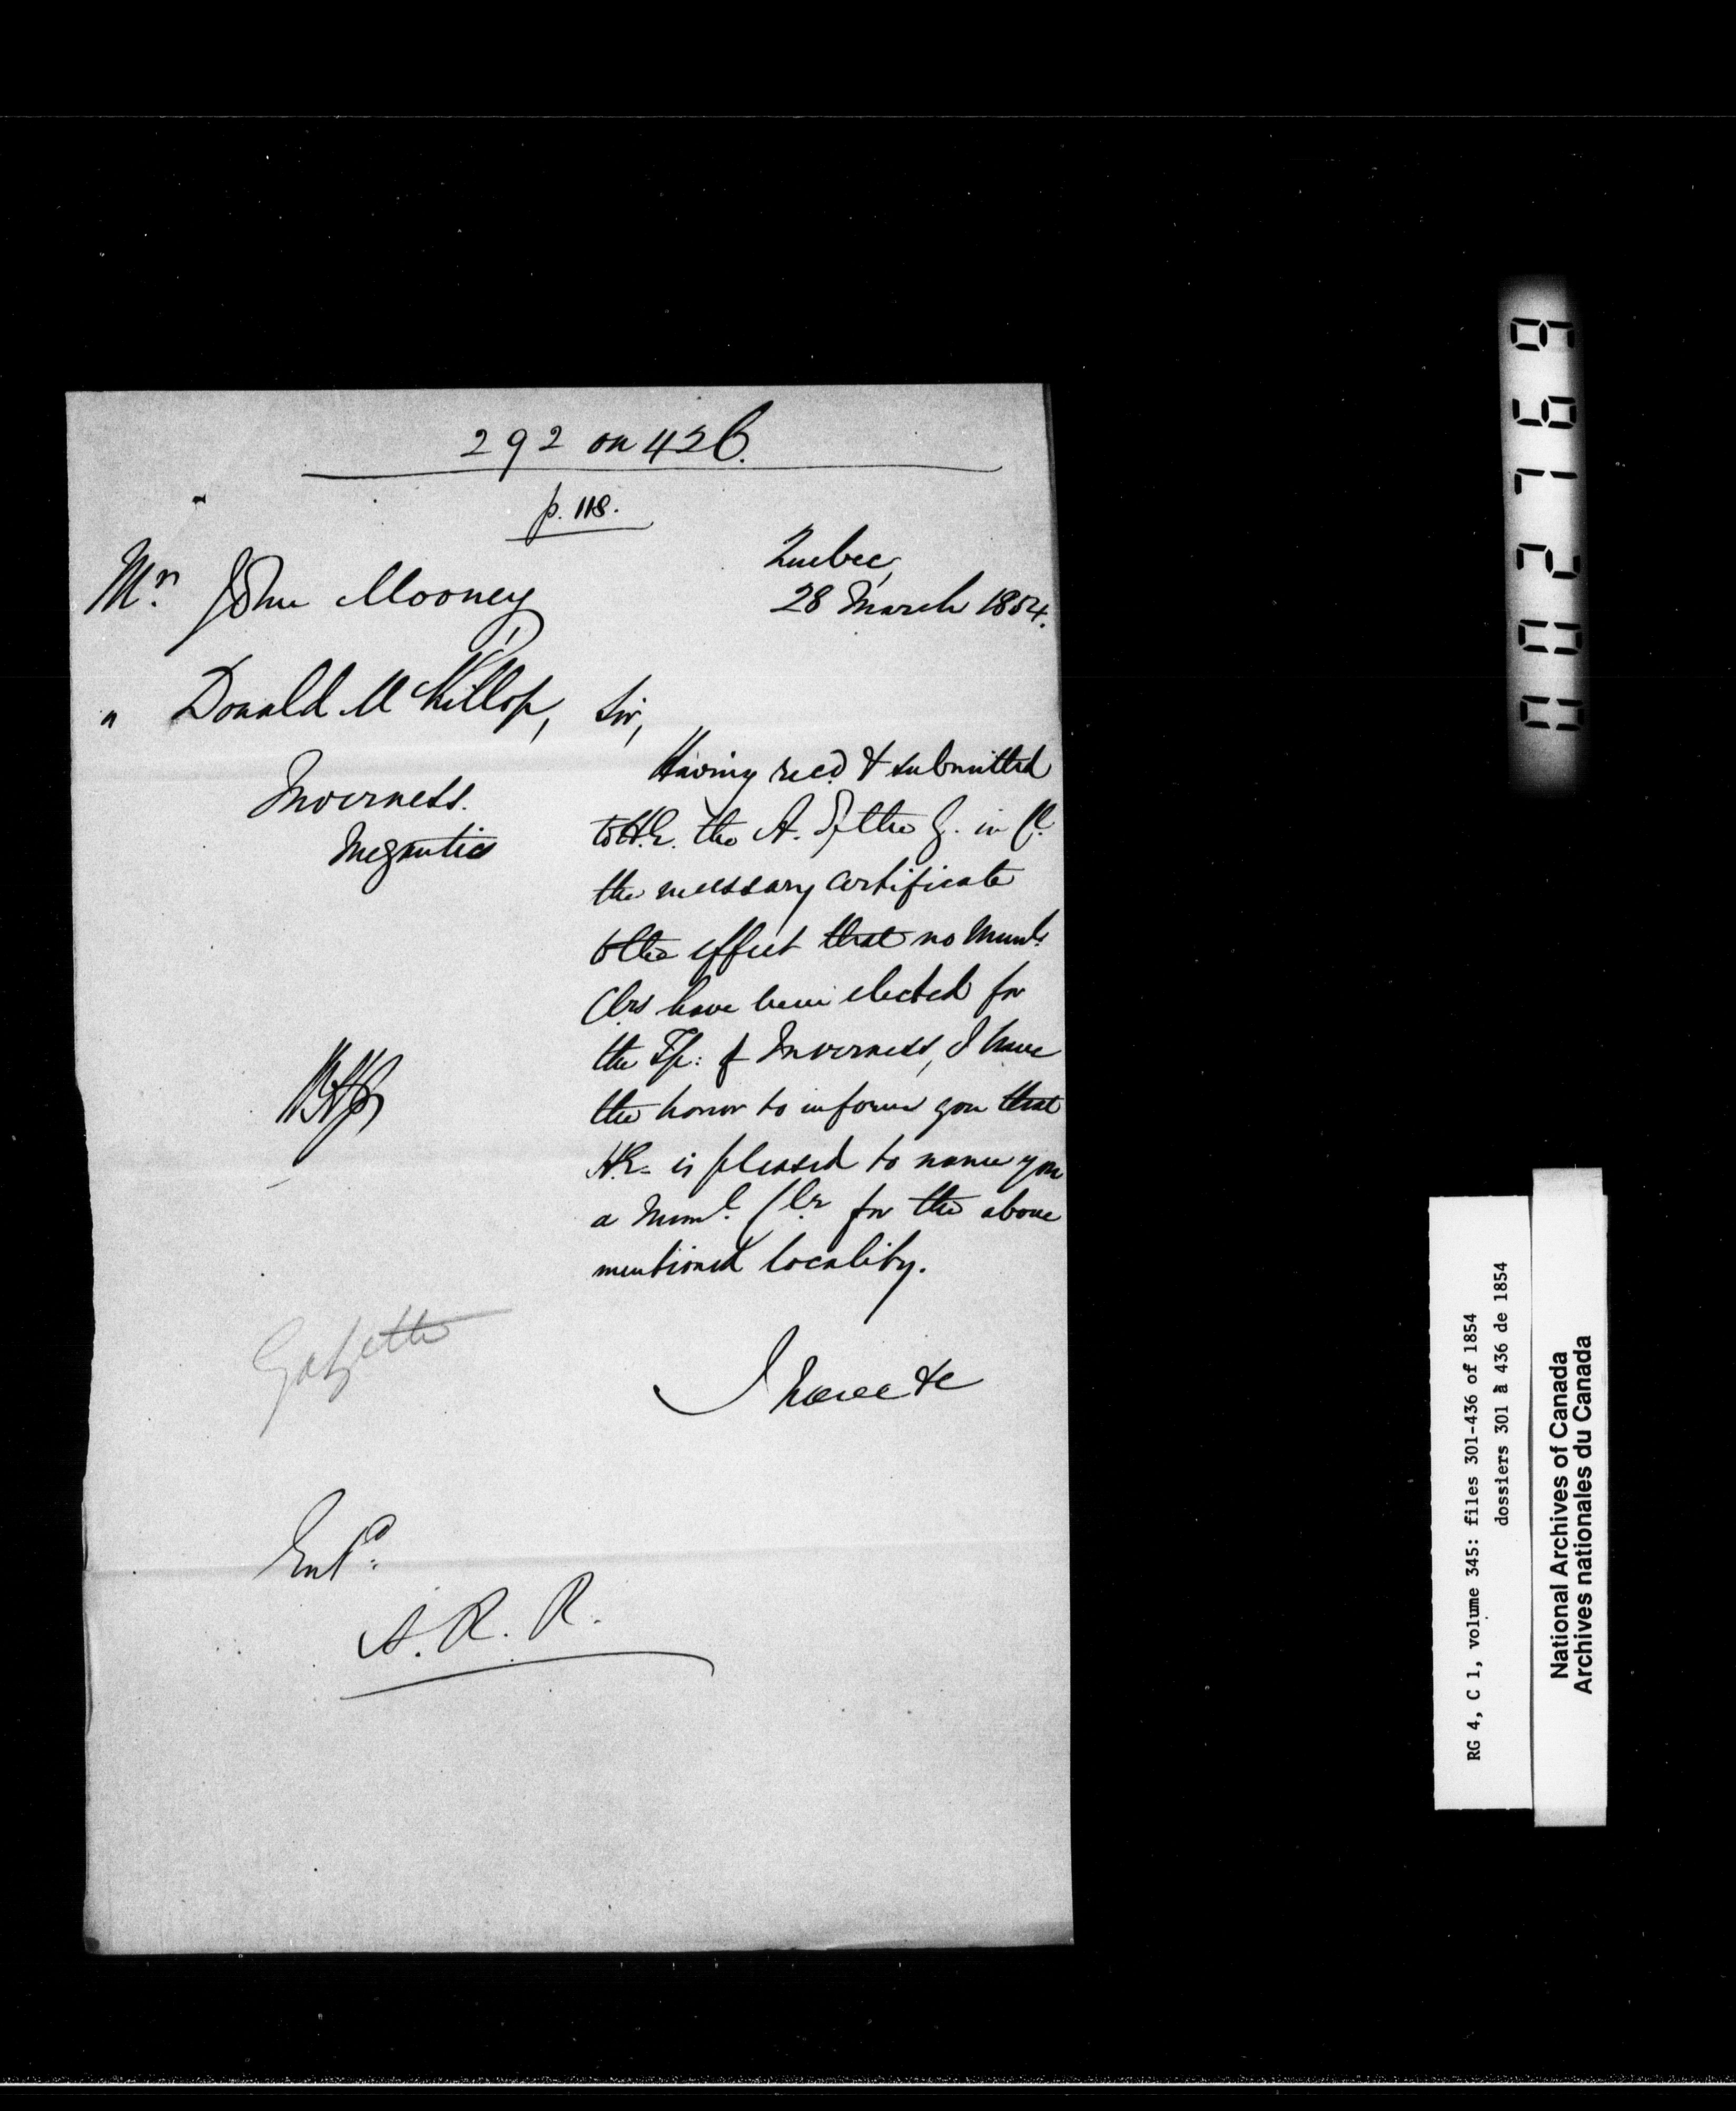 292 on 426.
p. 118.
Quebec,
28 March 1854.
Mr. John Mooney,
" Donald McKillop,
Inverness.
Megantic
Sir,
Having recd. & submitted
to H.E. the A. of the G. in Cl.
the necessary certificate
to the effect that no Munl.
Clrs have been elected for
the Tp: of Inverness, I have
the honor to inform you that
H.E. is pleased to name you
a Munl. Clr for the above
mentioned locality.
I have &c
Gazette
Entd.
A. R. R.
027679
RG 4, C 1, volume 345: files 301-436 of 1854
dossiers 301 à 436 de 1854
National Archives of Canada
Archives nationales du Canada